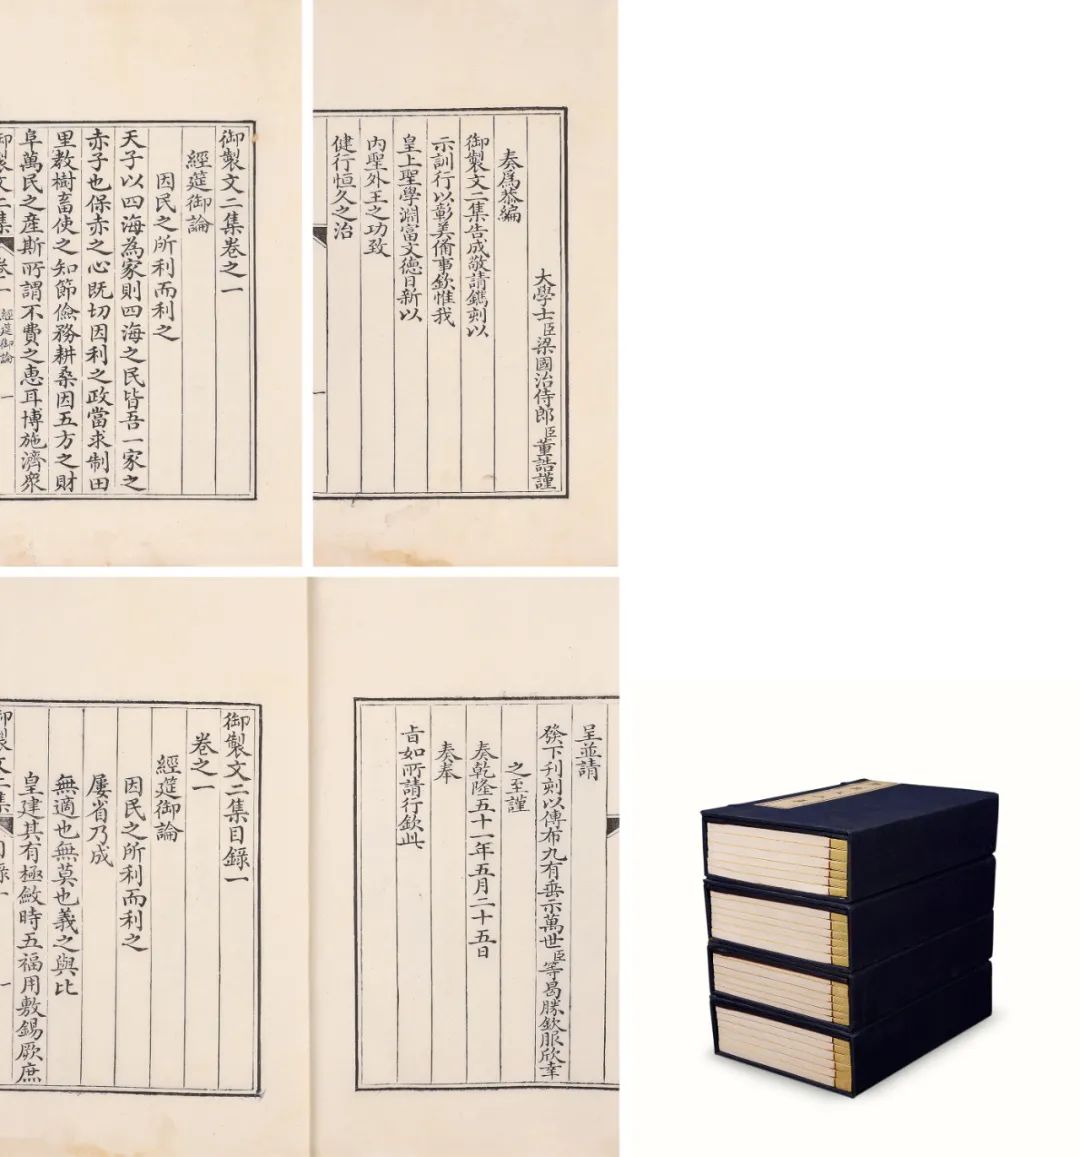 御製文二集卷之一
經筵御論
因民之所利而利之
天子以四海為家則四海之民皆吾一家之
赤子也保赤之心既切因利之政當求制田
里教樹畜使之知節儉務耕桑因五方之財
阜萬民之産斯所謂不費之惠耳博施濟衆
御製文二集 卷一 經筵御論 一
大學士臣梁國治侍郎臣董誥謹
奏爲恭編
御製文二集告成敬請鐫刻以
示訓行以彰美備事欽惟我
皇上聖學淵富文德日新以
内聖外王之功致
健行恒久之治
一
御製文二集目錄一
卷之一
經筵御論
因民之所利而利之
屢省乃成
無適也無莫也義之與比
皇建其有極斂時五福用敷錫厥庶
御製文二集 目錄一 一
呈並請
發下刊刻以傳布九有垂示萬世臣等曷勝欽服欣幸
之至謹
奏乾隆五十一年五月二十五日
奏奉
旨如所請行欽此